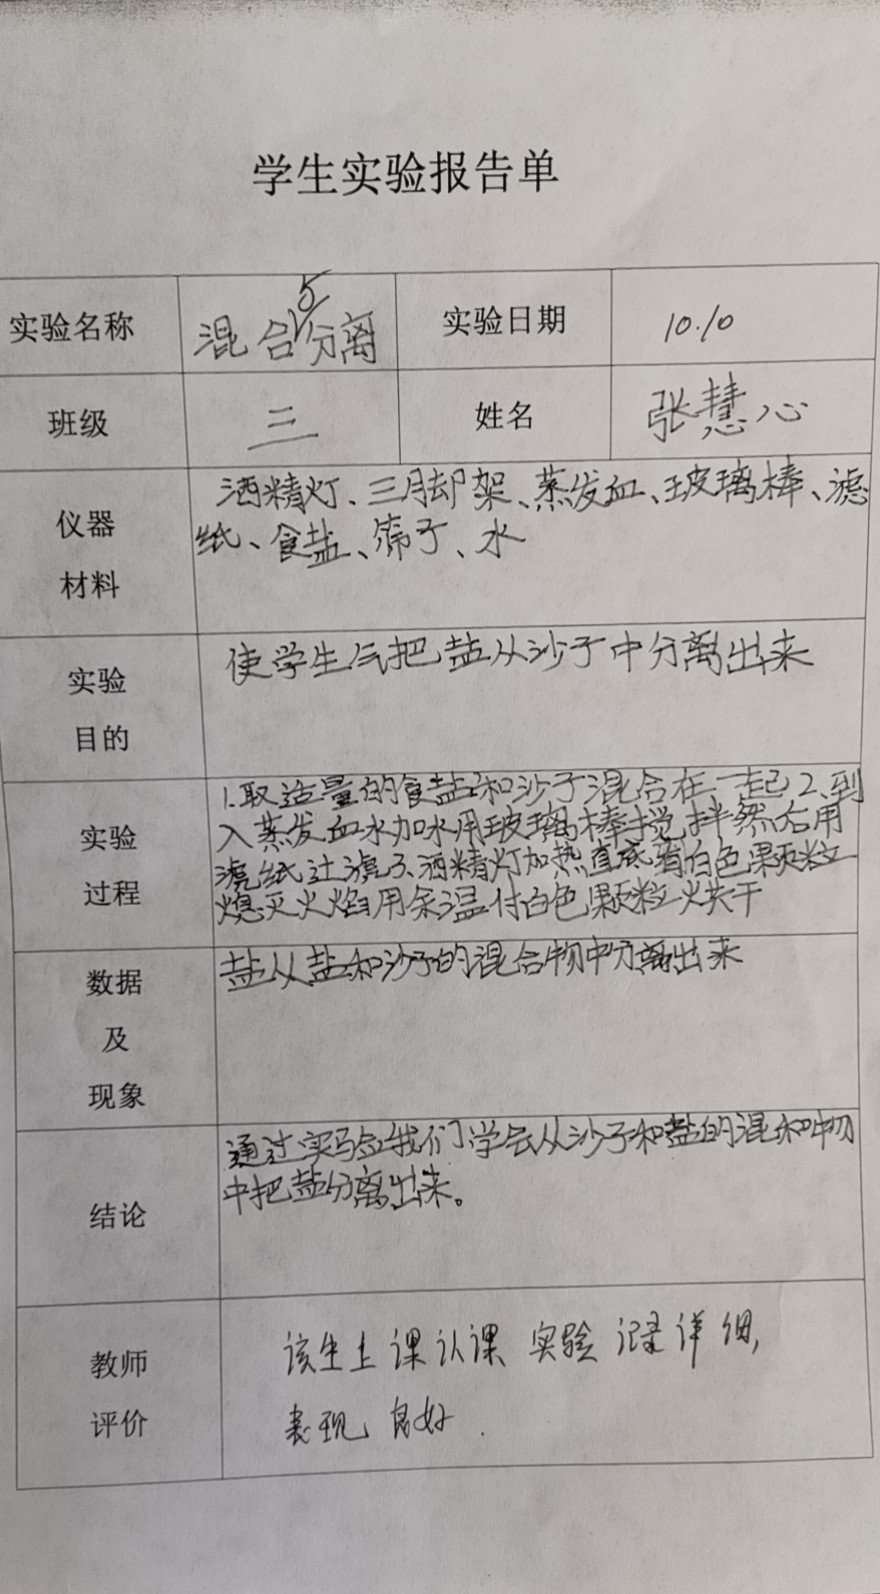 学生实验报告单
实验名称 混合与分离 实验日期 10.10
班级 三 姓名 张慧心
仪器
材料
酒精灯、三脚却架、蒸发血、玻璃棒、滤
纸、食盐、筛子、水
实验
目的
使学生气把盐从沙子中分离出来
实验
过程
1.取适量的食盐和沙子混合在一起2、到
入蒸发血水加水用玻璃棒搅拌然右用
滤纸过滤3、酒精灯加热直底有白色颗粒
熄灭火焰用余温付白色颗粒火共干
数据
及
现象
盐从盐和沙子的混合物中分离出来
结论
通过实验我们学会从沙子和盐的混和物
中把盐分离出来。
教师
评价
该生上课认课 实验记录详细,
表现良好.